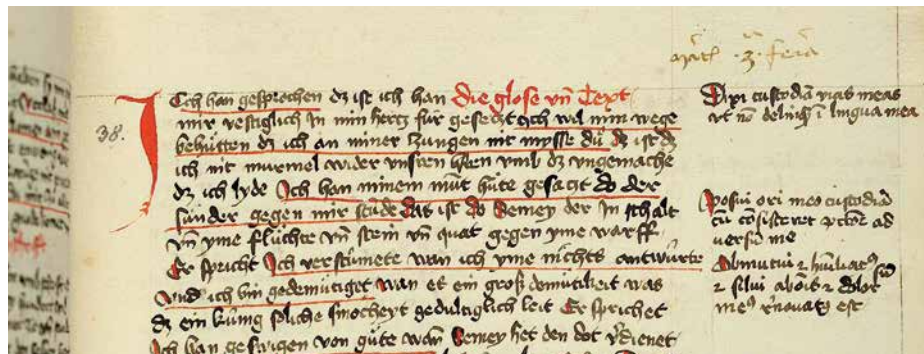 Ich han gesprochen dz ist ich han die glose vn Text
mir vestiglich In min hertz fur gesetzt Ich wil min wege
behutten dz ich an miner zungen nit mysse du dz ist dz
ich nit murmel wider vnsren herren vmb dz vngemache
dz ich lyde Ich han minem mut hute gesatzt do der
sunder gegen mir stude Das ist do Semey der In schalt
vn yme fluchte vn stein vn quat gegen yme warff
Er spricht Ich verstumete wan ich yme nichts antwurte
vnd ich bin gedemutiget wan et ein groß demutikeit was
dz ein kunig soliche smocheyt gedultiglich leit Er sprichet
Ich han geswigen von gute wan Semey het den dot v'dienet
38.
3 feria
Dixi custodia vias meas
vt no delinqa i lingua mea
Posui ori meo custodia
cu cosisteret pctor ad
versu me
Obmutui & humiliatus su
& silui a bonis & dolor
meus renouatus est